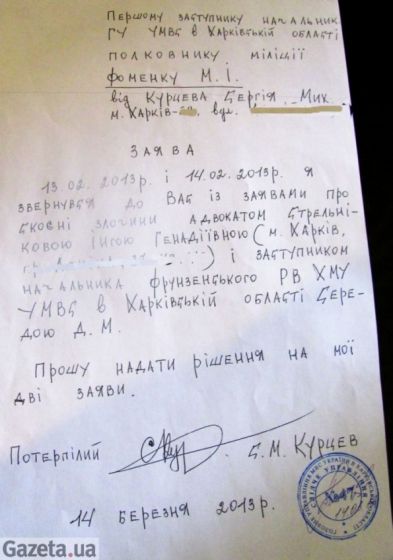 Першому заступнику начальник
ГУ УМВС в Харківській області
полковнику міліції
Фоменку М.І.
від Курцева Сергія Мик
м. Харків- вул.
ЗАЯВА
13.02.2013р. і 14.02.2013р. я
звернувся до Вас із заявами про
скоєні злочини адвокатом Стрельні-
ковою Інгою Генадіївною (м. Харків,
) і заступником
начальника Фрунзенського РВ ХМУ
УМВС в Харківській області Сере-
дою Д.М.
Прошу надати рішення на мої
дві заяви.
Потерпілий С.М. Курцев
14 березня 2013р.
Gazeta.ua